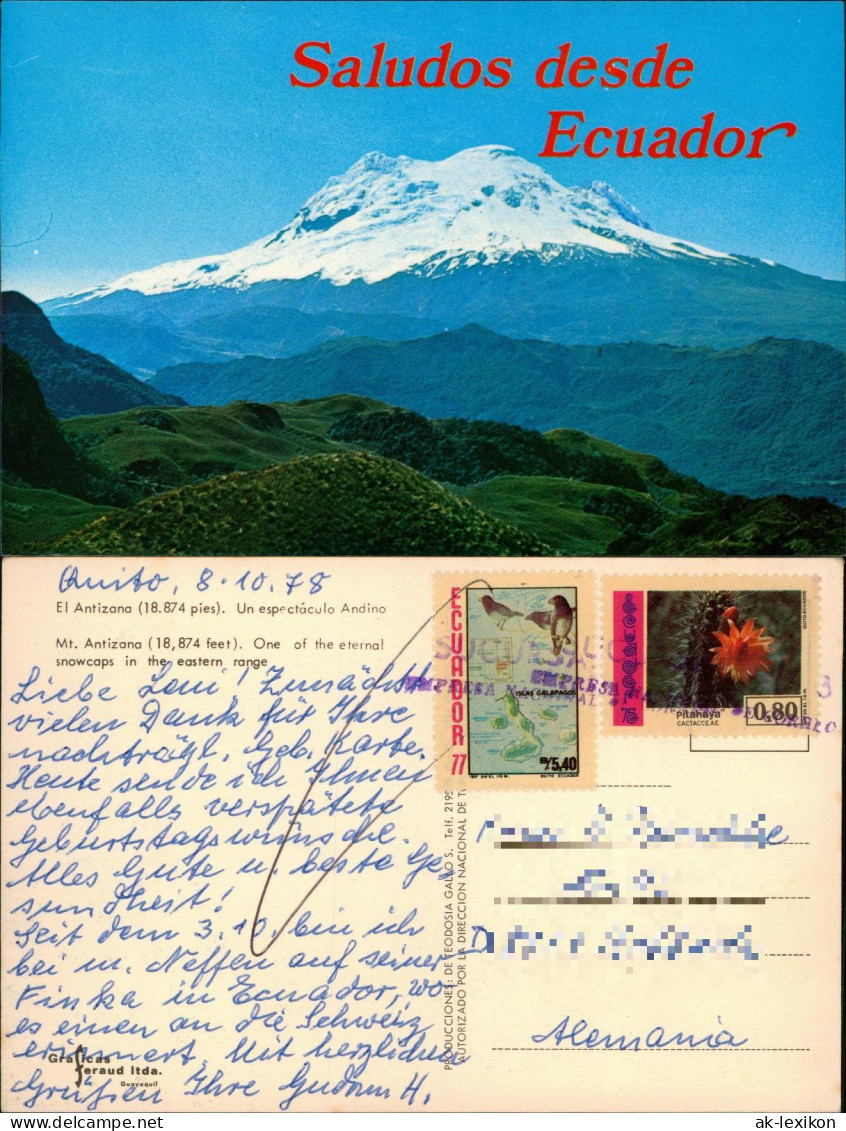 Saludos desde
Ecuador
Quito, 8.10.78
El Antizana (18.874 pies). Un espectáculo Andino
Mt. Antizana (18,874 feet). One of the eternal
snowcaps in the eastern range
Liebe Loni! Zunächst
vielen Dank für Ihre
nachträgl. Geb. karte.
Heute sende ich Ihnen
ebenfalls verspätete
Geburtstagswünsche.
Alles Gute u. beste Ge
sundheit!
Seit dem 3.10. bin ich
bei m. Neffen auf seiner
Finka in Ecuador, wo
es einen an die Schweiz
erinnert. Mit herzlichen
Grüßen Ihre Gudrun H.
Graficas
feraud ltda.
Guayaquil
PRODUCCIONES: DE TEODOSIA GALLO S. Telf. 2195
AUTORIZADO POR LA DIRECCION NACIONAL DE
ECUADOR 77
ISLAS GALAPAGOS
S/. 5,40
QUITO ECUADOR
75
"Pitahaya"
CACTACEAE
0.80
QUITO-ECUADOR
SUCURSAL
EMPRESA NACIONAL DE CORREO
Alemania
ak-lexikon